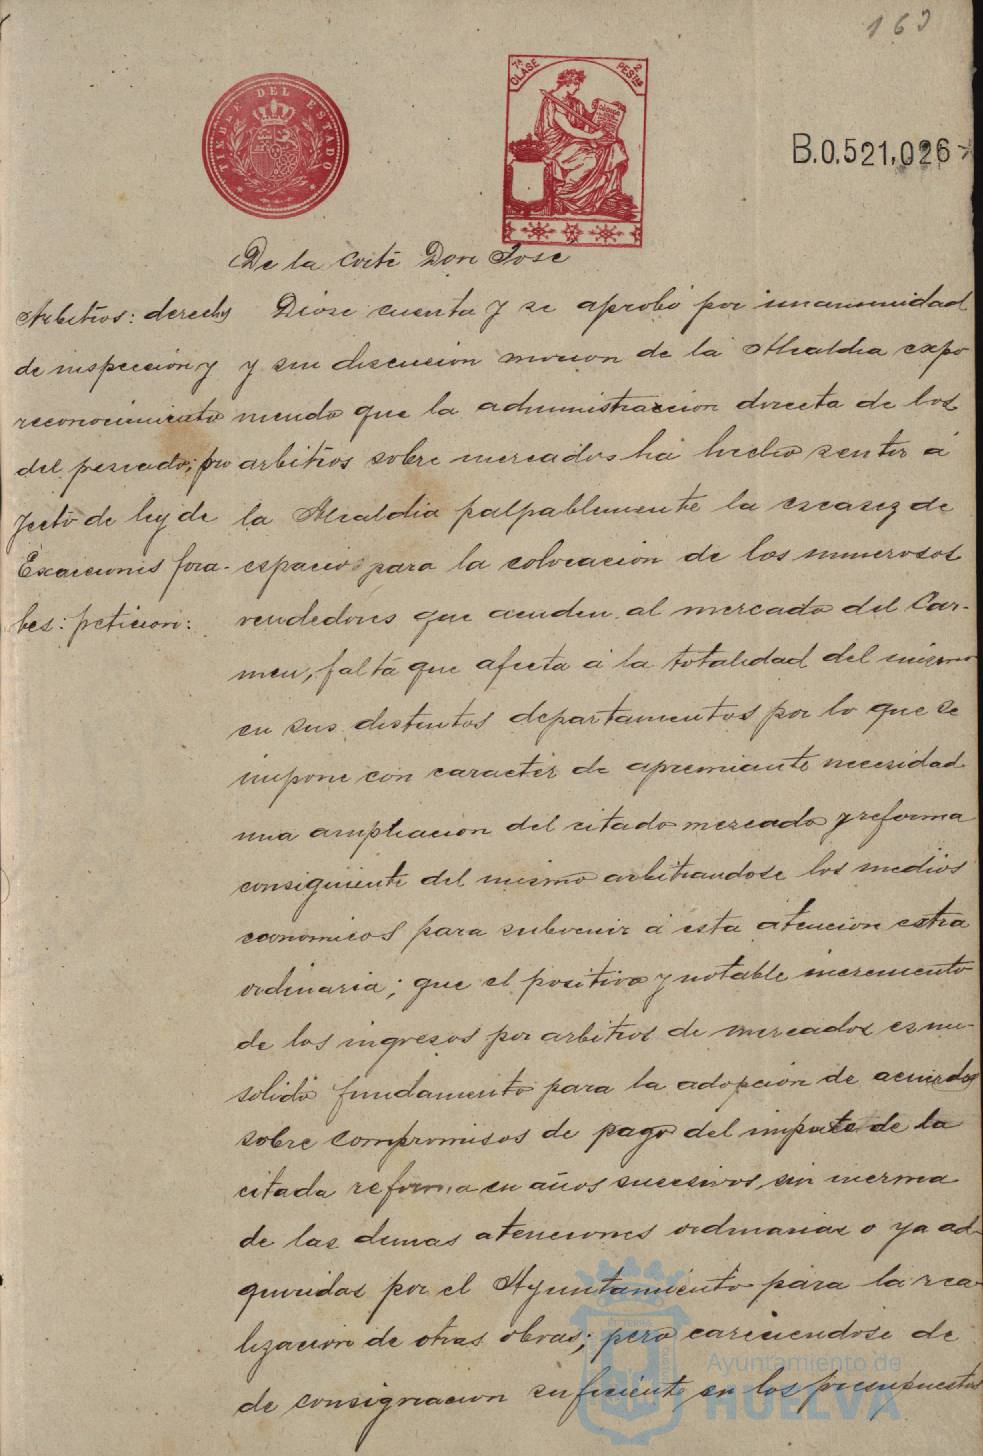 163
TIMBRE DEL ESTADO
7ª CLASE 2 PESTAS
B.0.521,026
De la Corte Don Jose
Arbitrios: derechos
de inspeccion y
reconocimiento
del pescado; pro
yecto de ley de
Exacciones fora-
les: peticion:
Diose cuenta y se aprobó por unanimidad
y sin discusion mocion de la Alcaldia expo
niendo que la administracion directa de los
arbitrios sobre mercados ha hecho sentir á
la Alcaldia palpablemente la escasez de
espacio para la colocacion de los numerosos
vendedores que acuden al mercado del Car-
men, falta que afecta á la totalidad del mismo
en sus distintos departamentos por lo que se
impone con caracter de apremiante necesidad
una ampliacion del citado mercado y reforma
consiguiente del mismo arbitrandose los medios
economicos para subvenir á esta atencion extra
ordinaria; que el positivo y notable incremento
de los ingresos por arbitrios de mercados es un
solido fundamento para la adopcion de acuerdos
sobre compromisos de pago del importe de la
citada reforma en años sucesivos sin merma
de las demas atenciones ordinarias o ya ad-
quiridas por el Ayuntamiento para la rea-
lizacion de otras obras; pero careciendose de
de consignacion suficiente en los presupuestos
Ayuntamiento de
HUELVA